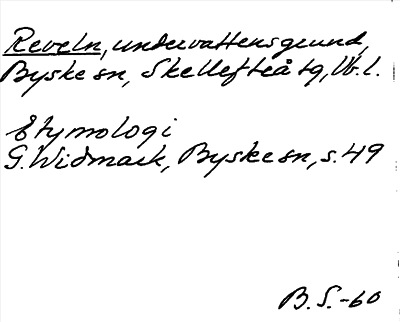 Reveln, undervattensgrund,
Byske sn, Skellefteå tg, Vb. l.
Etymologi
G. Widmark, Byske sn, s. 49
B. S. -60